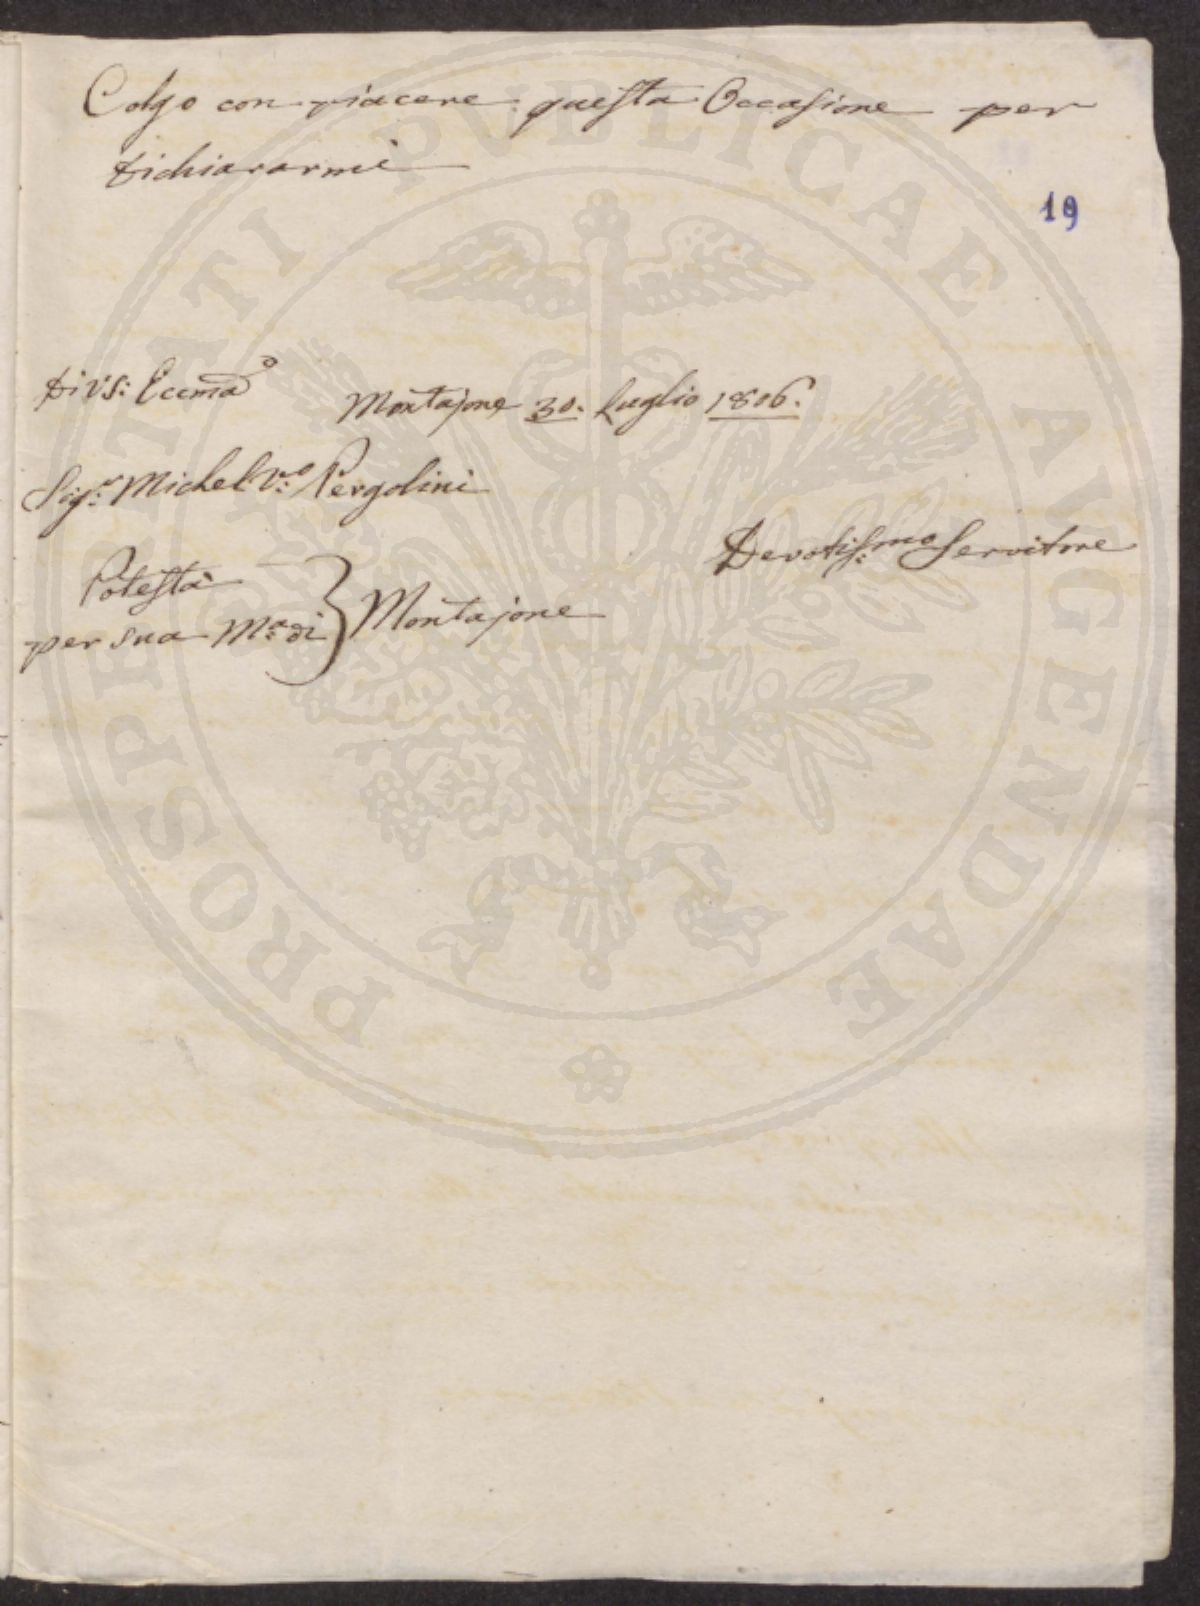 Colgo con piacere questa Occasione per
dichiararmi
19
Di VS: Eccma
Montajone 30. Luglio 1806.
Sigr: Michel Vo: Pergolini
Devotis:mo Servitore
Potestà
per sua Ma: di } Montajone
PROSPERITATI PVBLICAE AVGENDAE